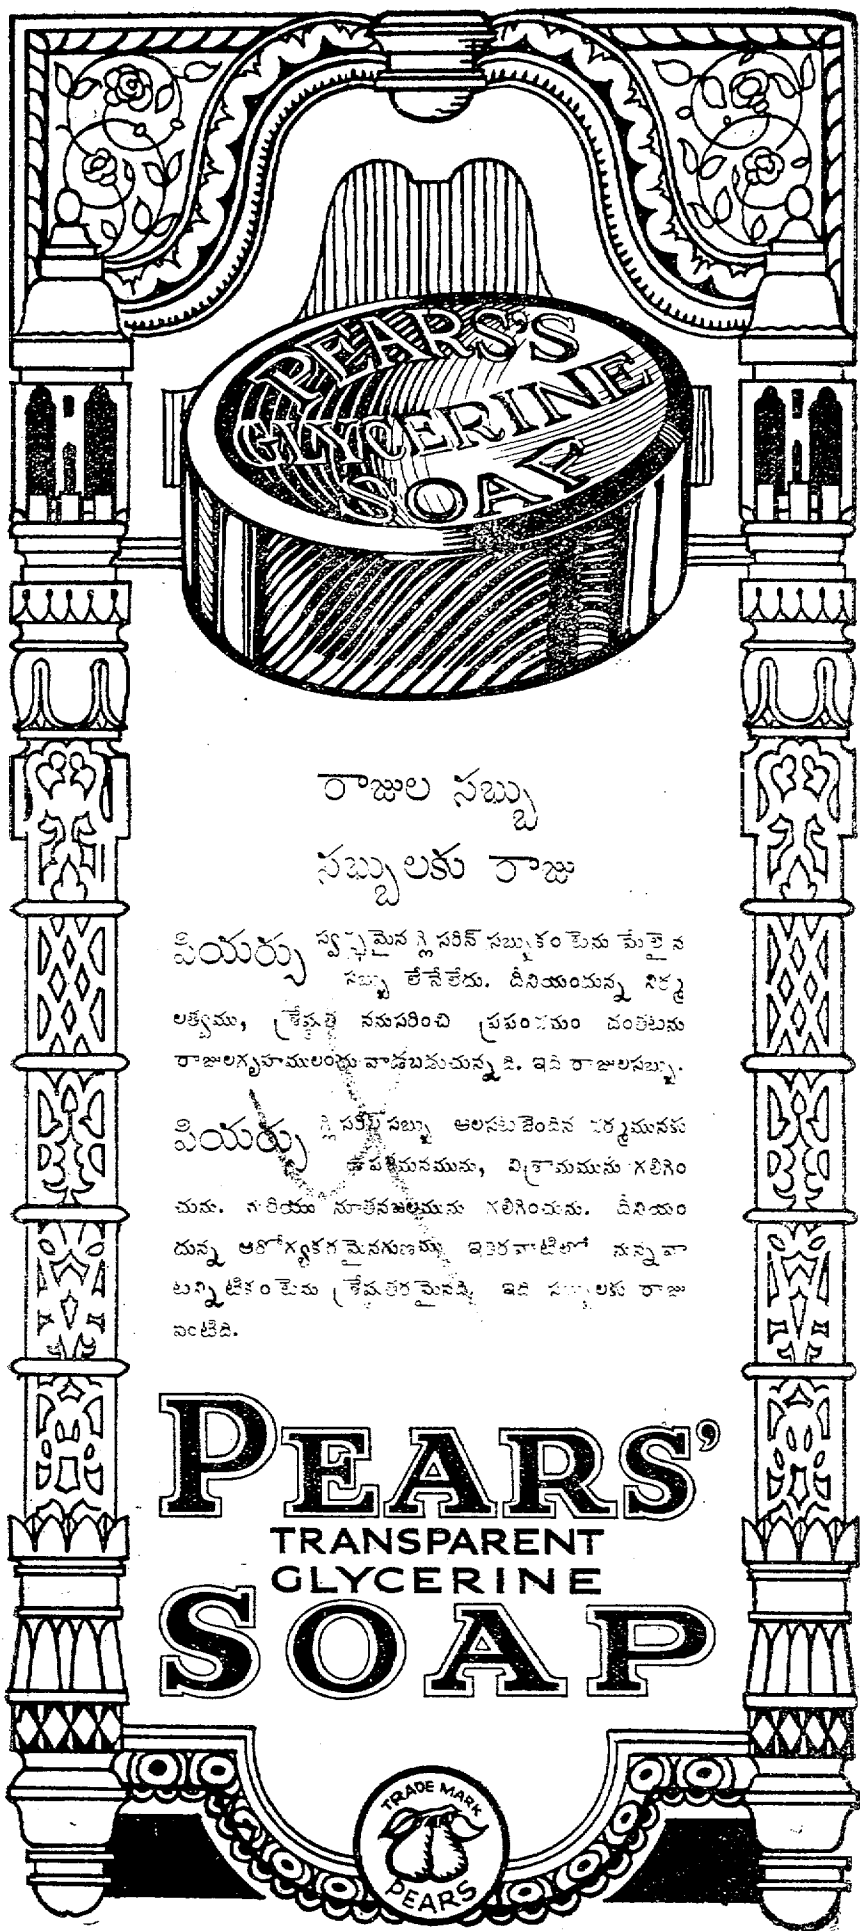 PEARS'S
GLYCERINE
SOAP
రాజుల సబ్బు
సబ్బులకు రాజు
పియర్సు స్వచ్ఛమైన గ్లిసరిన్ సబ్బుకంటెను మేలైన
సబ్బు లేనేలేదు. దీనియందున్న నిర్మ
లత్వము, శ్రేష్ఠత ననుసరించి ప్రపంచమం దంతటను
రాజులగృహములందు వాడబడుచున్నది. ఇది రాజులసబ్బు.
పియర్సు గ్లిసరిన్ సబ్బు ఆలసటజెందిన చర్మమునకు
ఉపశమనమును, విశ్రామమును గలిగిం
చును. మరియు నూతనబలమును గలిగించును. దీనియం
దున్న ఆరోగ్యకరమైనగుణము ఇతరవాటిలో నున్నవా
టన్నిటికంటెను శ్రేష్ఠతరమైనది. ఇది సబ్బులకు రాజు
వంటిది.
PEARS'
TRANSPARENT
GLYCERINE
SOAP
TRADE MARK
PEARS